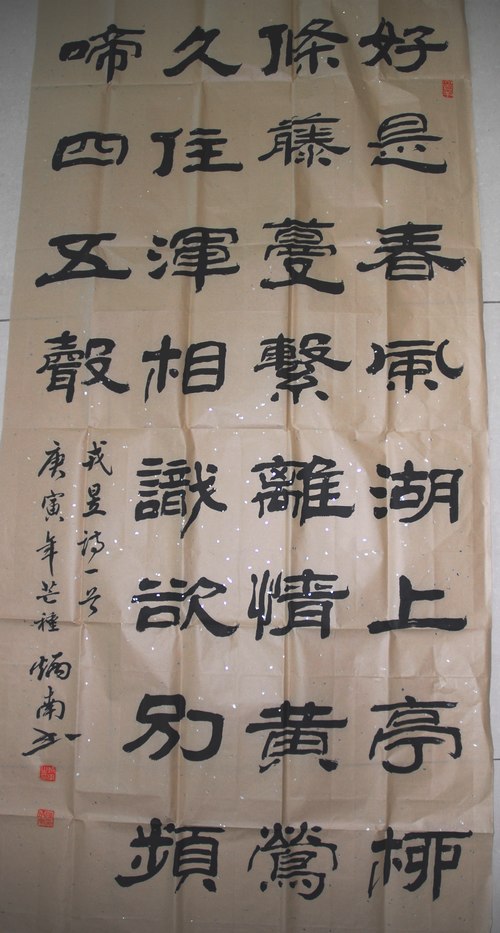 好是春風湖上亭柳
條藤蔓繫離情黃鶯
久住渾相識欲別頻
啼四五聲
戎昱诗一首
庚寅年芒種炳南书